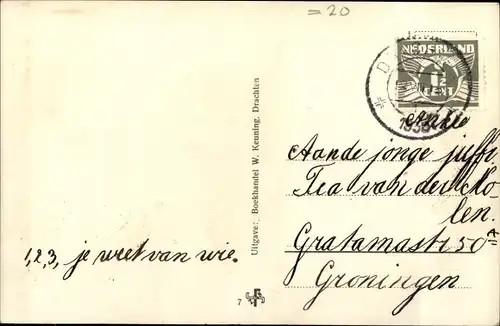 = 20
NEDERLAND
1½
CENT
D
1938
1,2,3, je weet van wie.
Uitgave: Boekhandel W. Keuning, Drachten
7
Aan de jonge juffr.
Tea van der Mo-
len.
Gratamastr. 50a
Groningen